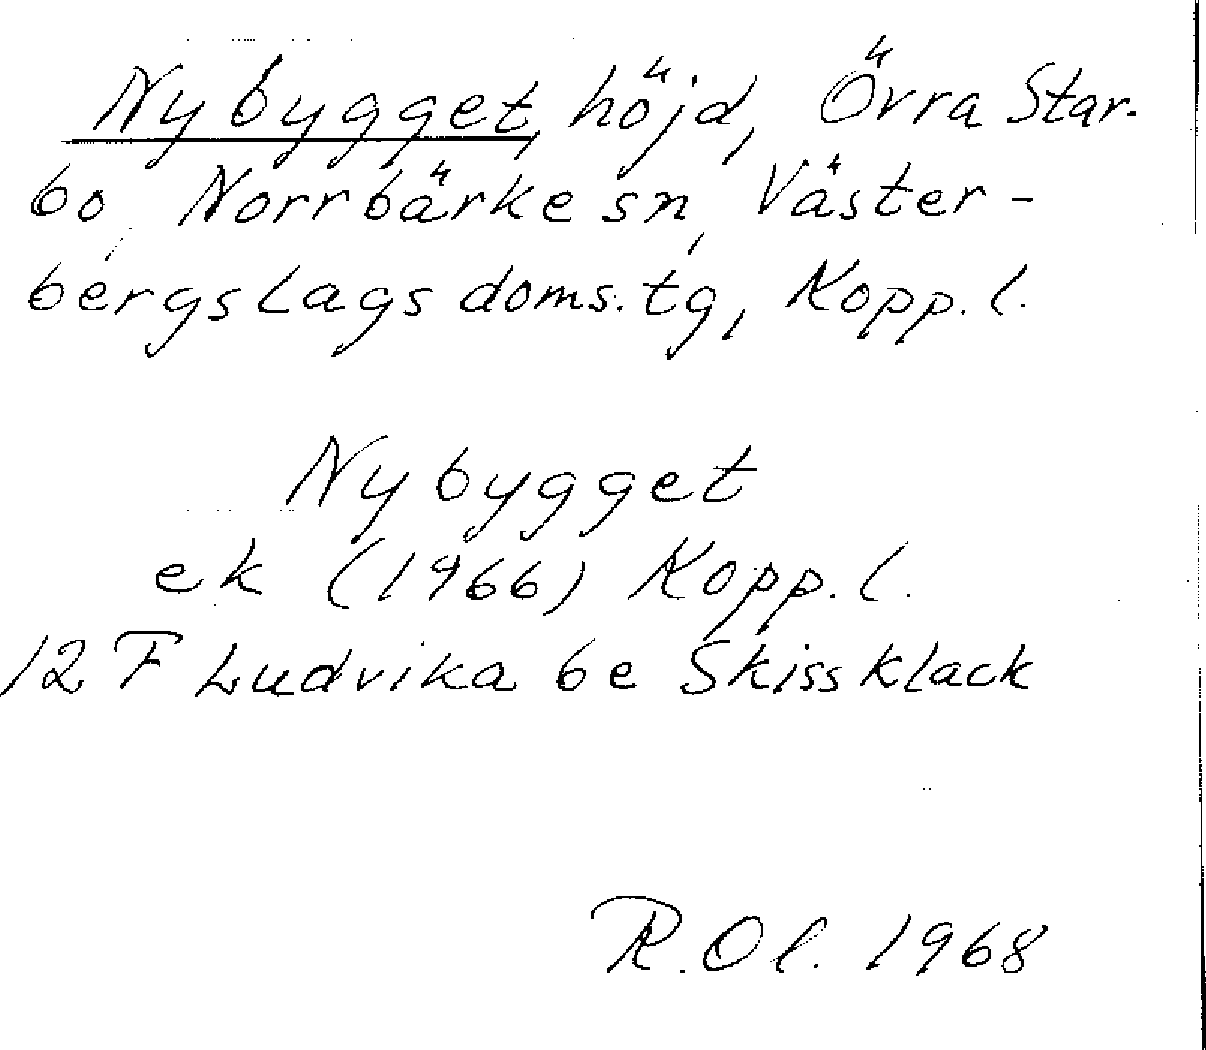 Nybygget, höjd, Övra Star-
bo, Norrbärke sn, Väster-
bergslags doms.tg, Kopp.l.
Nybygget
ek (1966) Kopp.l.
12 F Ludvika be Skissklack
R.Ol. 1968